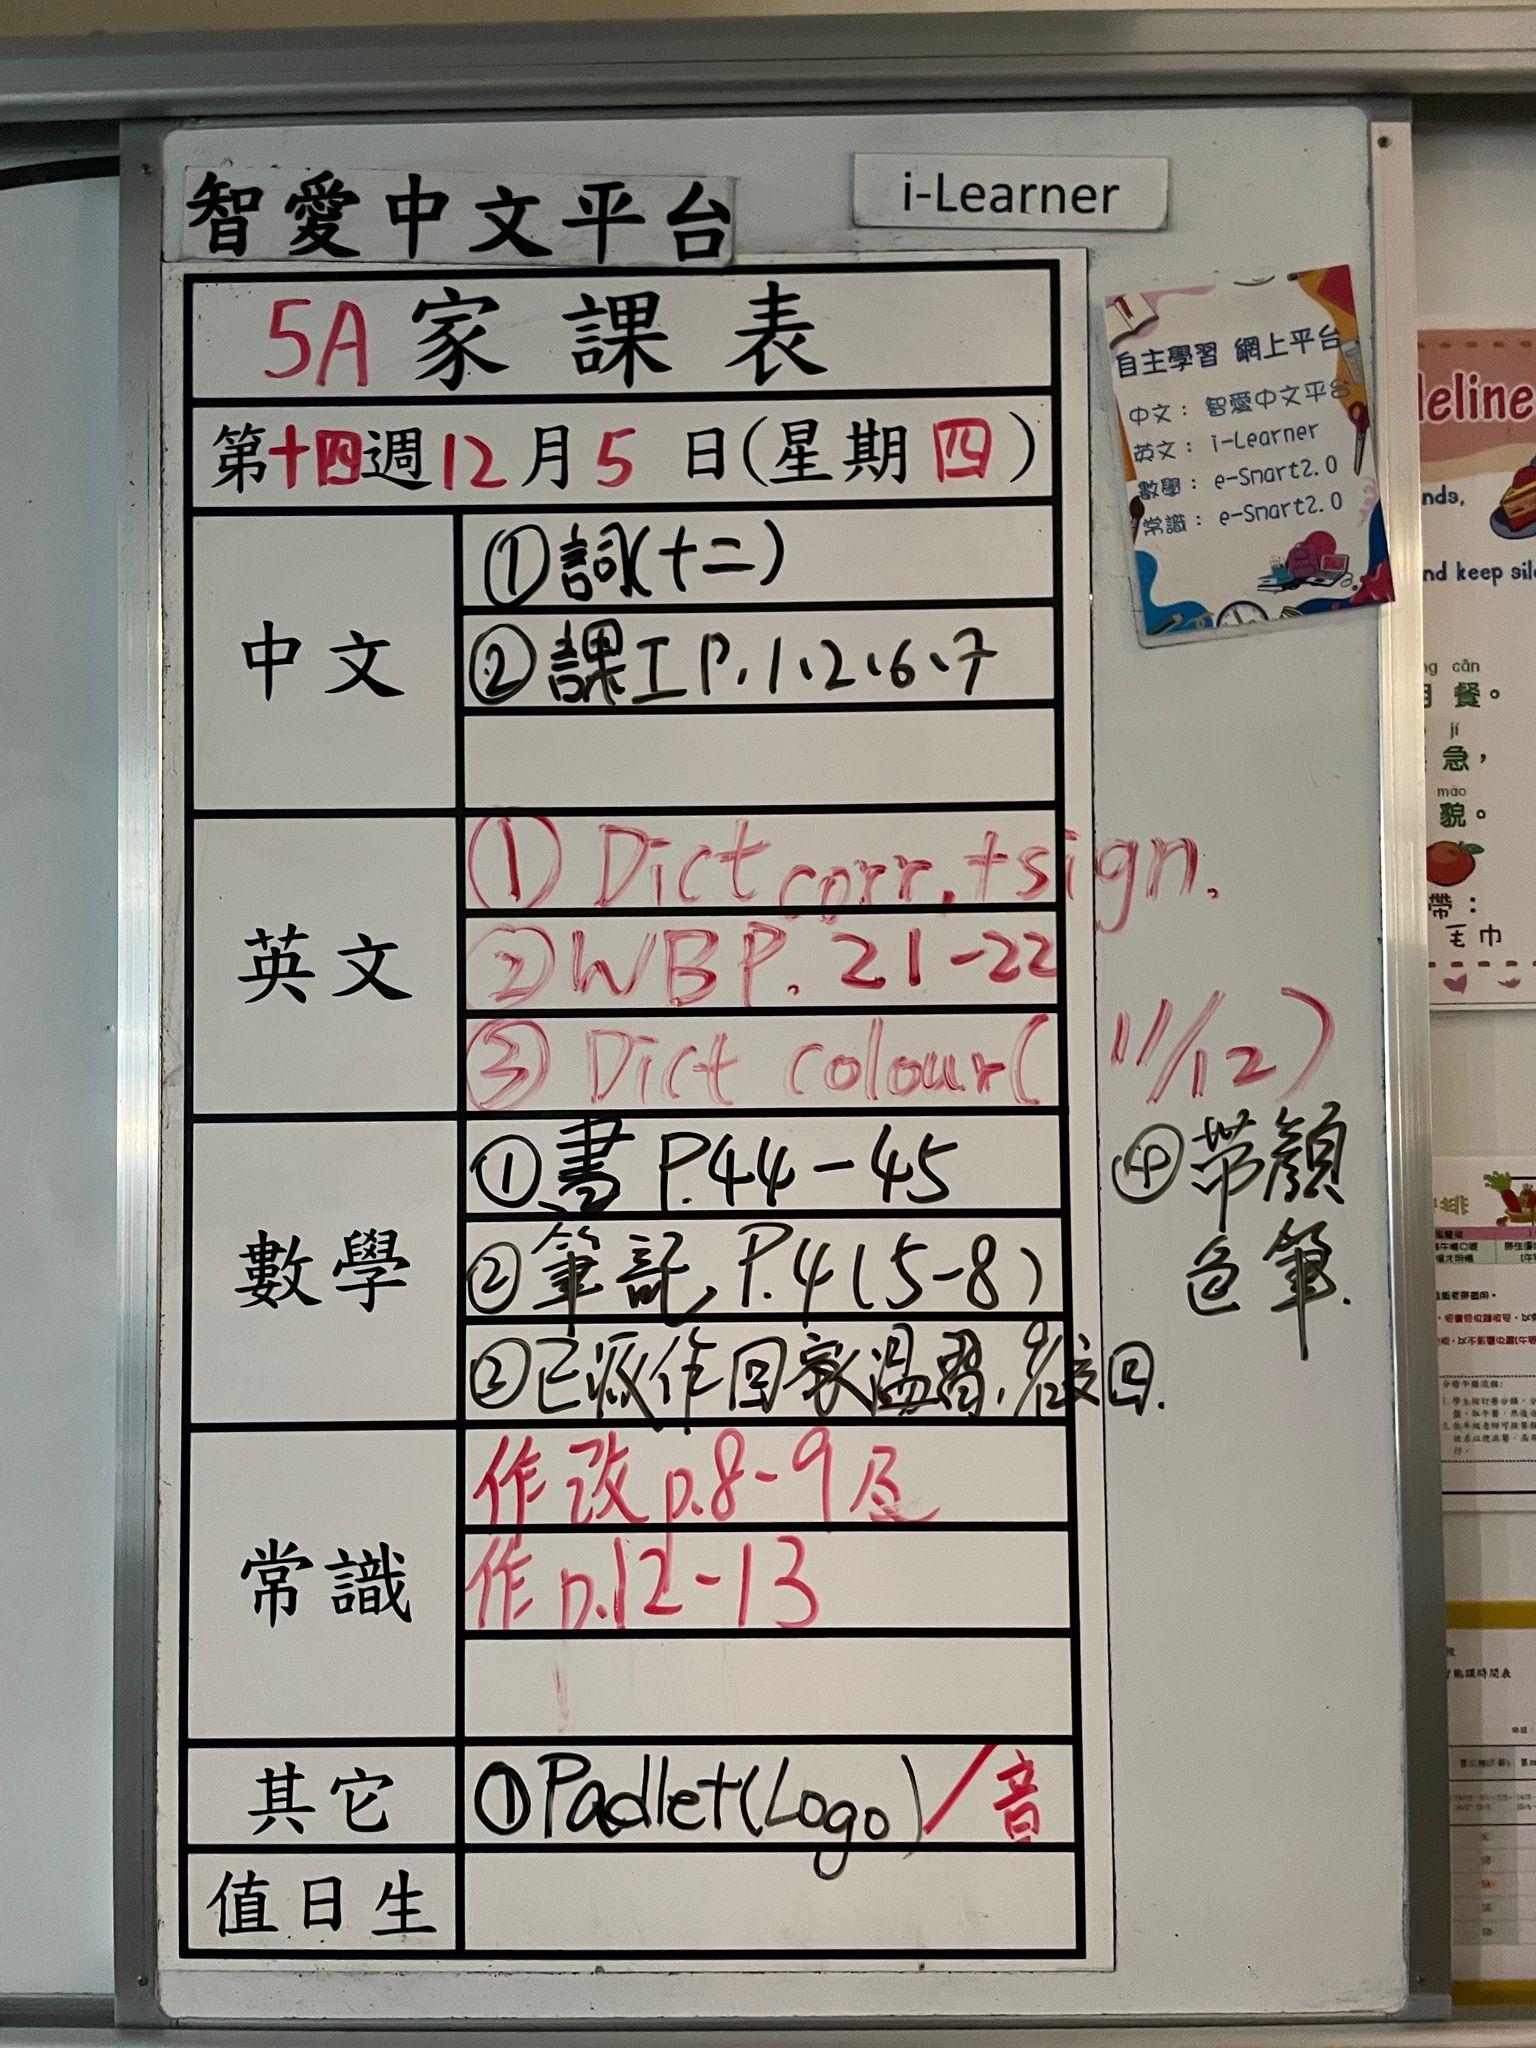 智愛中文平台
i-Learner
5A家課表
第十四週12月5日(星期四)
中文
①詞(十二)
②課工P.1、2、6、7
英文
①Dict corr.+sign.
②WB P.21-22
③Dict colour(11/12)
數學
①書P.44-45
②筆記P.4(5-8)
③已派作回家溫習,9/12交回.
④帶顏
色筆.
常識
作改p.8-9及
作p.12-13
其它
①Padlet(Logo)/音
值日生
自主學習 網上平台
中文：智愛中文平台
英文：i-Learner
數學：e-Smart2.0
常識：e-Smart2.0
deline
nds,
nd keep sil
cān
餐。
jí
急，
mào
貌。
帶：
毛巾